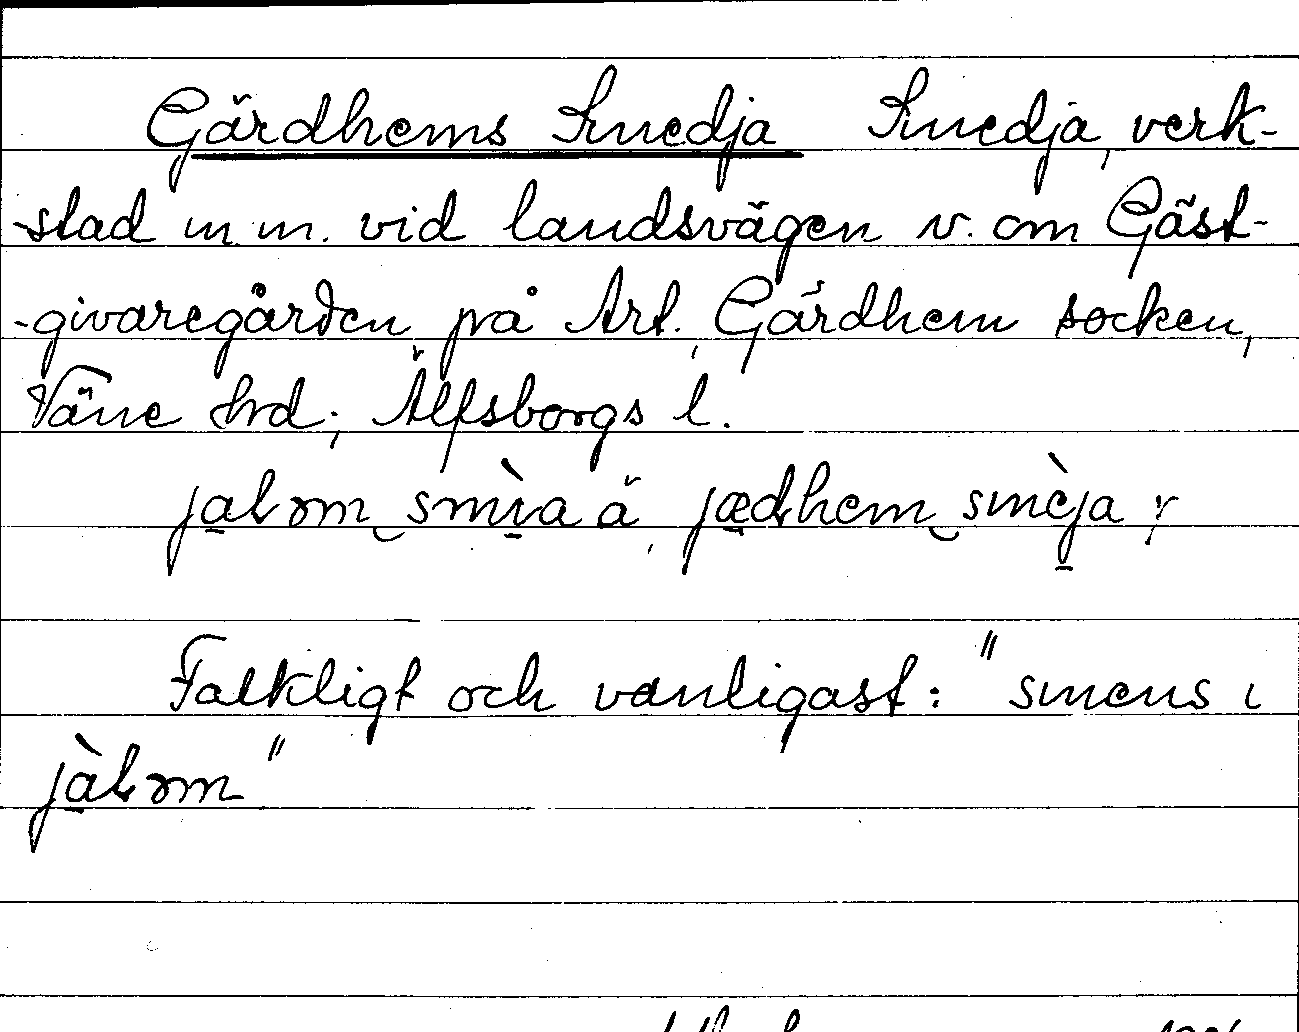 Gärdhems Smedja Smedja, verk-
stad m.m. vid landsvägen v. om Gäst-
-givaregården på Art, Gärdhem socken,
Väne hrd; Älfsborgs l.
jaləm smìa ä, jædhem smèja r
Falkligt och vanligast: "smens i
jàləm"